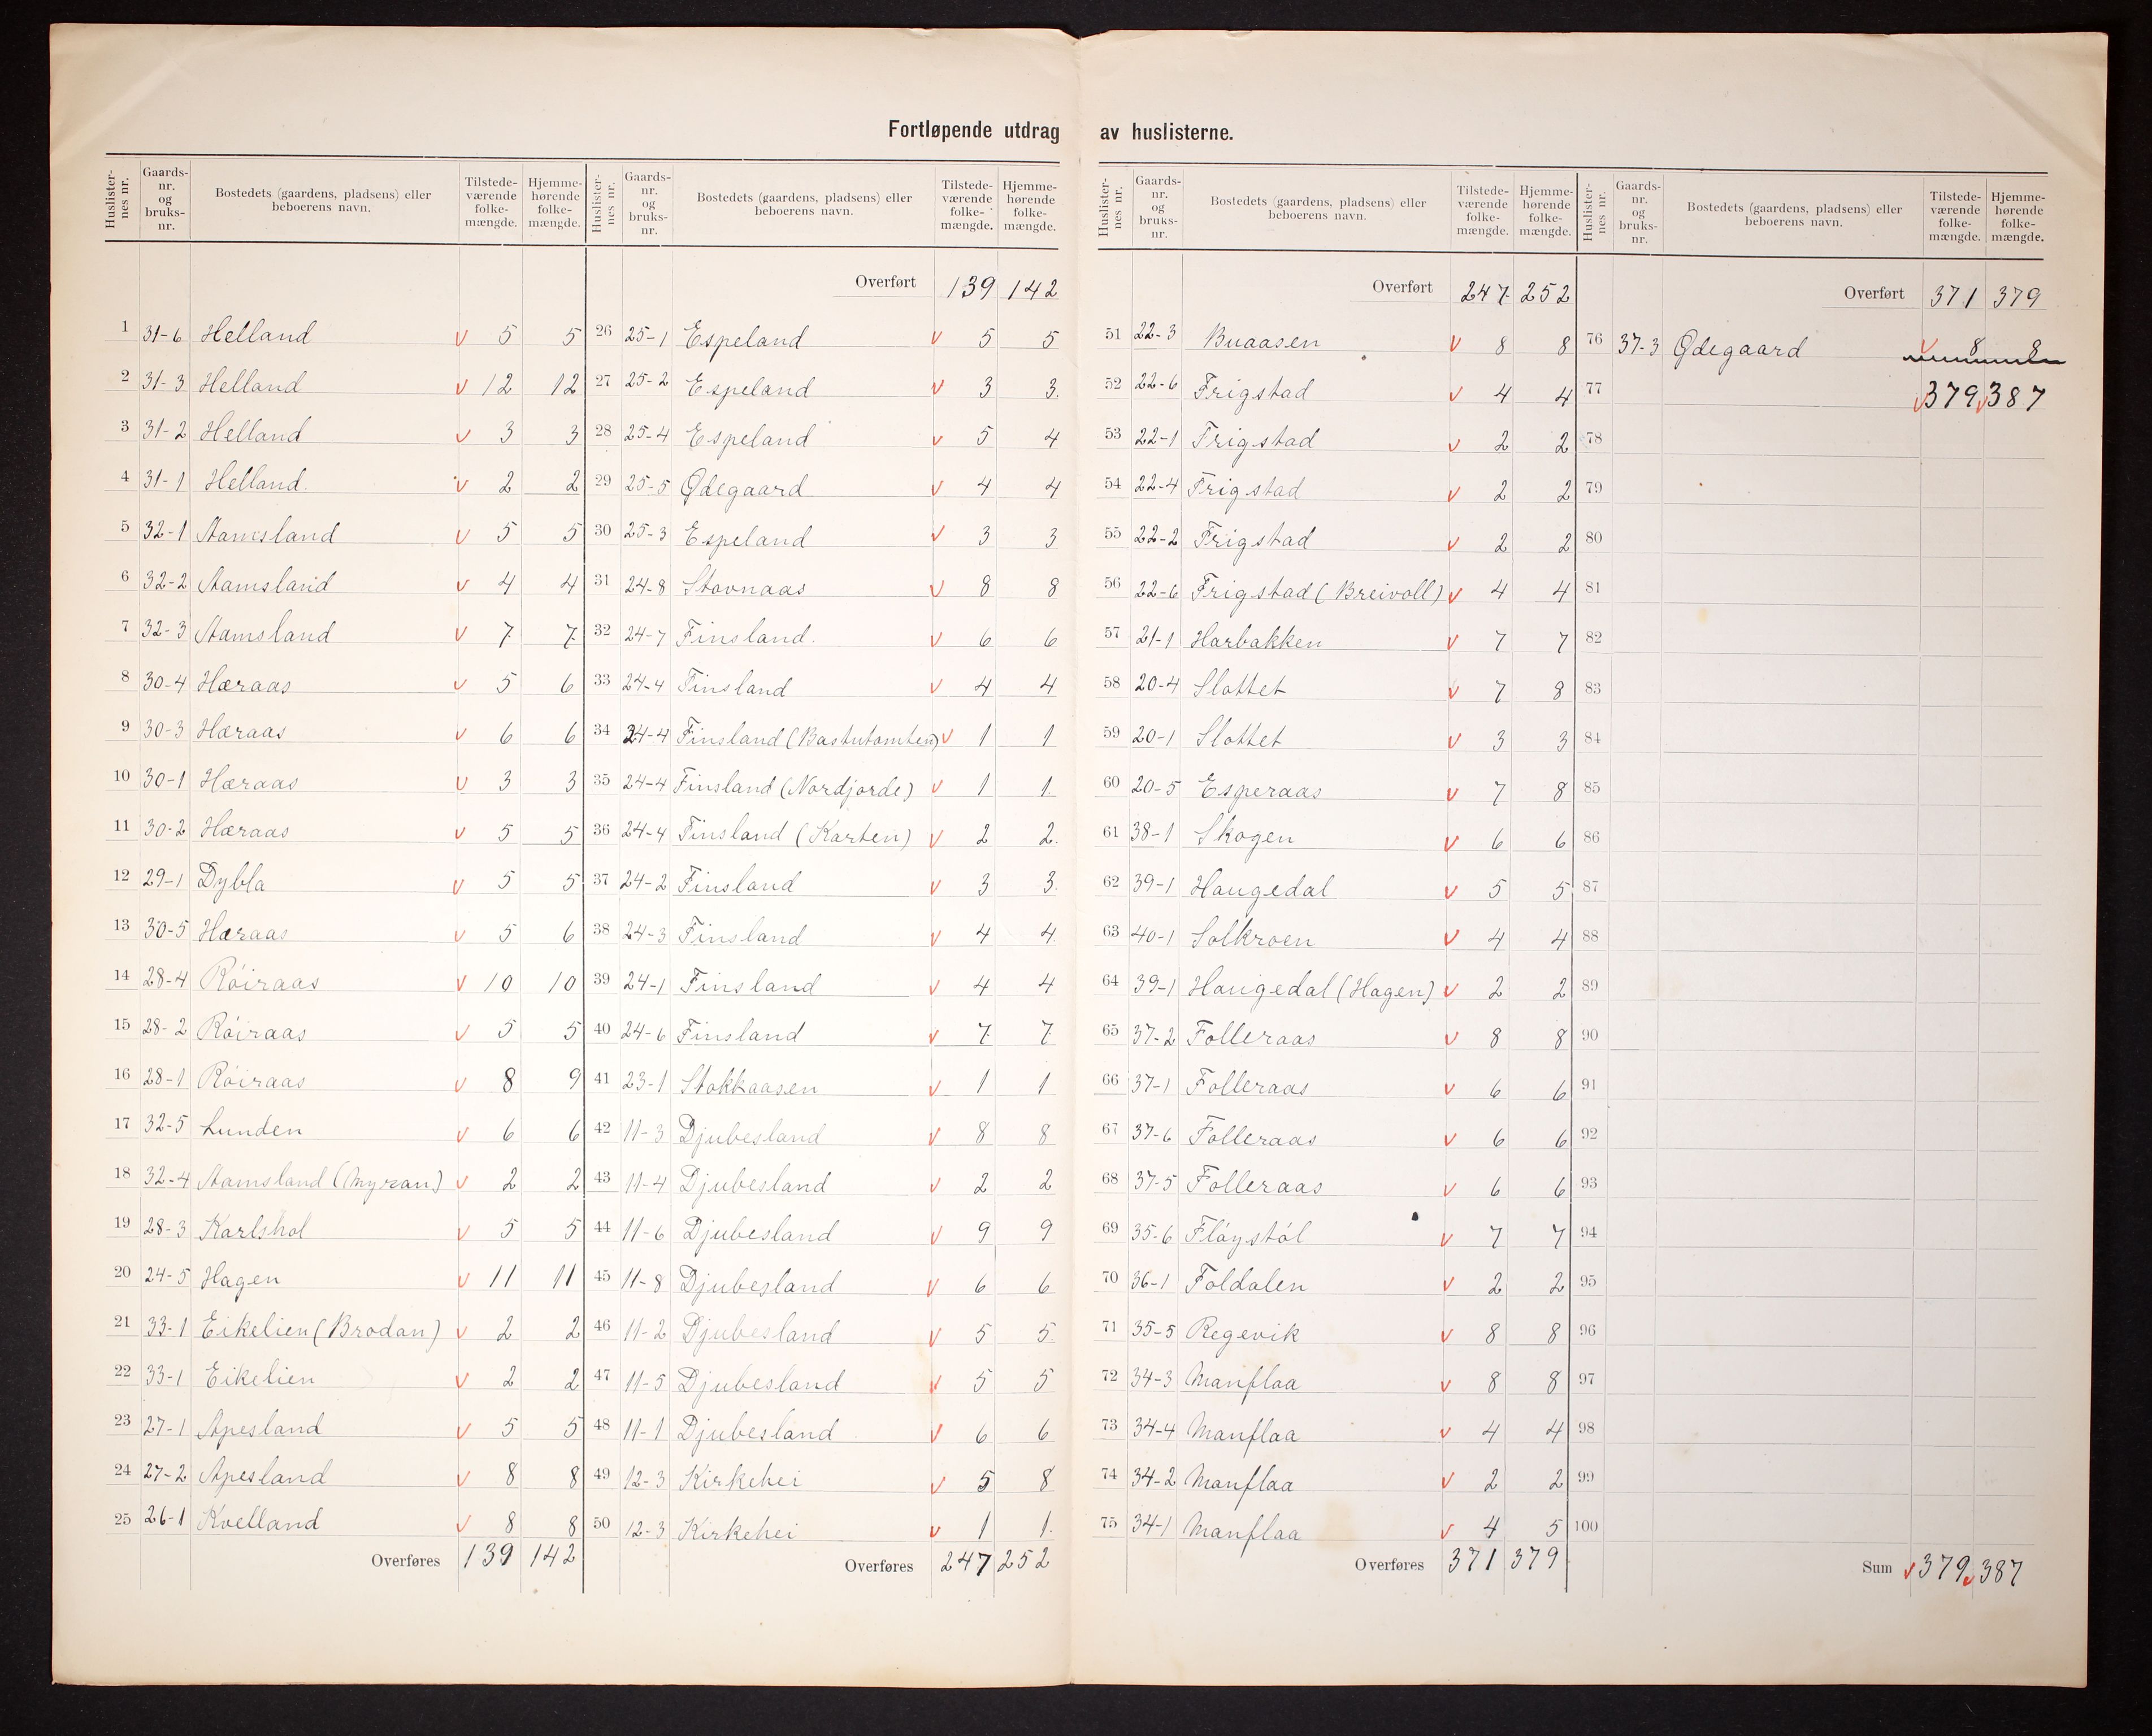 Fortløpende utdrag av huslisterne.
Huslisternes nr. Gaards-nr. og bruks-nr. Bostedets (gaardens, pladsens) eller beboerens navn. Tilstede-værende folke-mængde. Hjemme-hørende folke-mængde.
1 31-6 Helland v 5 5
2 31-3 Helland v 12 12
3 31-2 Helland v 3 3
4 31-1 Helland. v 2 2
5 32-1 Aamsland v 5 5
6 32-2 Aamsland v 4 4
7 32-3 Aamsland v 7 7
8 30-4 Hæraas v 5 6
9 30-3 Hæraas v 6 6
10 30-1 Hæraas v 3 3
11 30-2 Hæraas v 5 5
12 29-1 Dybla v 5 5
13 30-5 Hæraas v 5 6
14 28-4 Röiraas v 10 10
15 28-2 Röiraas v 5 5
16 28-1 Röiraas v 8 9
17 32-5 Lunden v 6 6
18 32-4 Aamsland (Myran) v 2 2
19 28-3 Karlshol v 5 5
20 24-5 Hagen v 11 11
21 33-1 Eikelien (Brodan) v 2 2
22 33-1 Eikelien v 2 2
23 27-1 Apesland v 5 5
24 27-2 Apesland v 8 8
25 26-1 Kvelland v 8 8
Overføres 139 142
Huslisternes nr. Gaards-nr. og bruks-nr. Bostedets (gaardens, pladsens) eller beboerens navn. Tilstede-værende folke-mængde. Hjemme-hørende folke-mængde.
Overført 139 142
26 25-1 Espeland v 5 5
27 25-2 Espeland v 3 3.
28 25-4 Espeland v 5 4
29 25-5 Ødegaard v 4 4
30 25-3 Espeland v 3 3
31 24-8 Stovnaas v 8 8
32 24-7 Finsland. v 6 6
33 24-4 Finsland v 4 4
34 24-4 Finsland (Bastutomten) v 1 1
35 24-4 Finsland (Nordjorde) v 1 1.
36 24-4 Finsland (Karten) v 2 2.
37 24-2 Finsland v 3 3.
38 24-3 Finsland v 4 4.
39 24-1 Finsland v 4 4
40 24-6 Finsland v 7 7
41 23-1 Stokkaasen v 1 1
42 11-3 Djubesland v 8 8
43 11-4 Djubesland v 2 2
44 11-6 Djubesland v 9 9
45 11-8 Djubesland v 6 6
46 11-2 Djubesland v 5 5.
47 11-5 Djubesland v 5 5
48 11-1 Djubesland v 6 6
49 12-3 Kirkehei v 5 8
50 12-3 Kirkehei v 1 1.
Overføres 247 252
Huslisternes nr. Gaards-nr. og bruks-nr. Bostedets (gaardens, pladsens) eller beboerens navn. Tilstede-værende folke-mængde. Hjemme-hørende folke-mængde.
Overført 247 252
51 22-3 Buaasen v 8 8
52 22-6 Frigstad v 4 4
53 22-1 Frigstad v 2 2
54 22-4 Frigstad v 2 2
55 22-2 Frigstad v 2 2
56 22-6 Frigstad (Breivoll) v 4 4
57 21-1 Harbakken v 7 7
58 20-4 Slottet v 7 8
59 20-1 Slottet v 3 3
60 20-5 Esperaas v 7 8
61 38-1 Skogen v 6 6
62 39-1 Haugedal v 5 5
63 40-1 Solkroen v 4 4
64 39-1 Haugedal (Hagen) v 2 2
65 37-2 Folleraas v 8 8
66 37-1 Folleraas v 6 6
67 37-6 Folleraas v 6 6
68 37-5 Folleraas v 6 6
69 35-6 Flöystöl v 7 7
70 36-1 Foldalen v 2 2
71 35-5 Regevik v 8 8
72 34-3 Manflaa v 8 8
73 34-4 Manflaa v 4 4
74 34-2 Manflaa v 2 2
75 34-1 Manflaa v 4 5
Overføres 371 379
Huslisternes nr. Gaards-nr. og bruks-nr. Bostedets (gaardens, pladsens) eller beboerens navn. Tilstede-værende folke-mængde. Hjemme-hørende folke-mængde.
Overført 371 379
76 37-3 Ødegaard v 8 8
77 v 379 v 387
78
79
80
81
82
83
84
85
86
87
88
89
90
91
92
93
94
95
96
97
98
99
100
Sum v 379 v 387